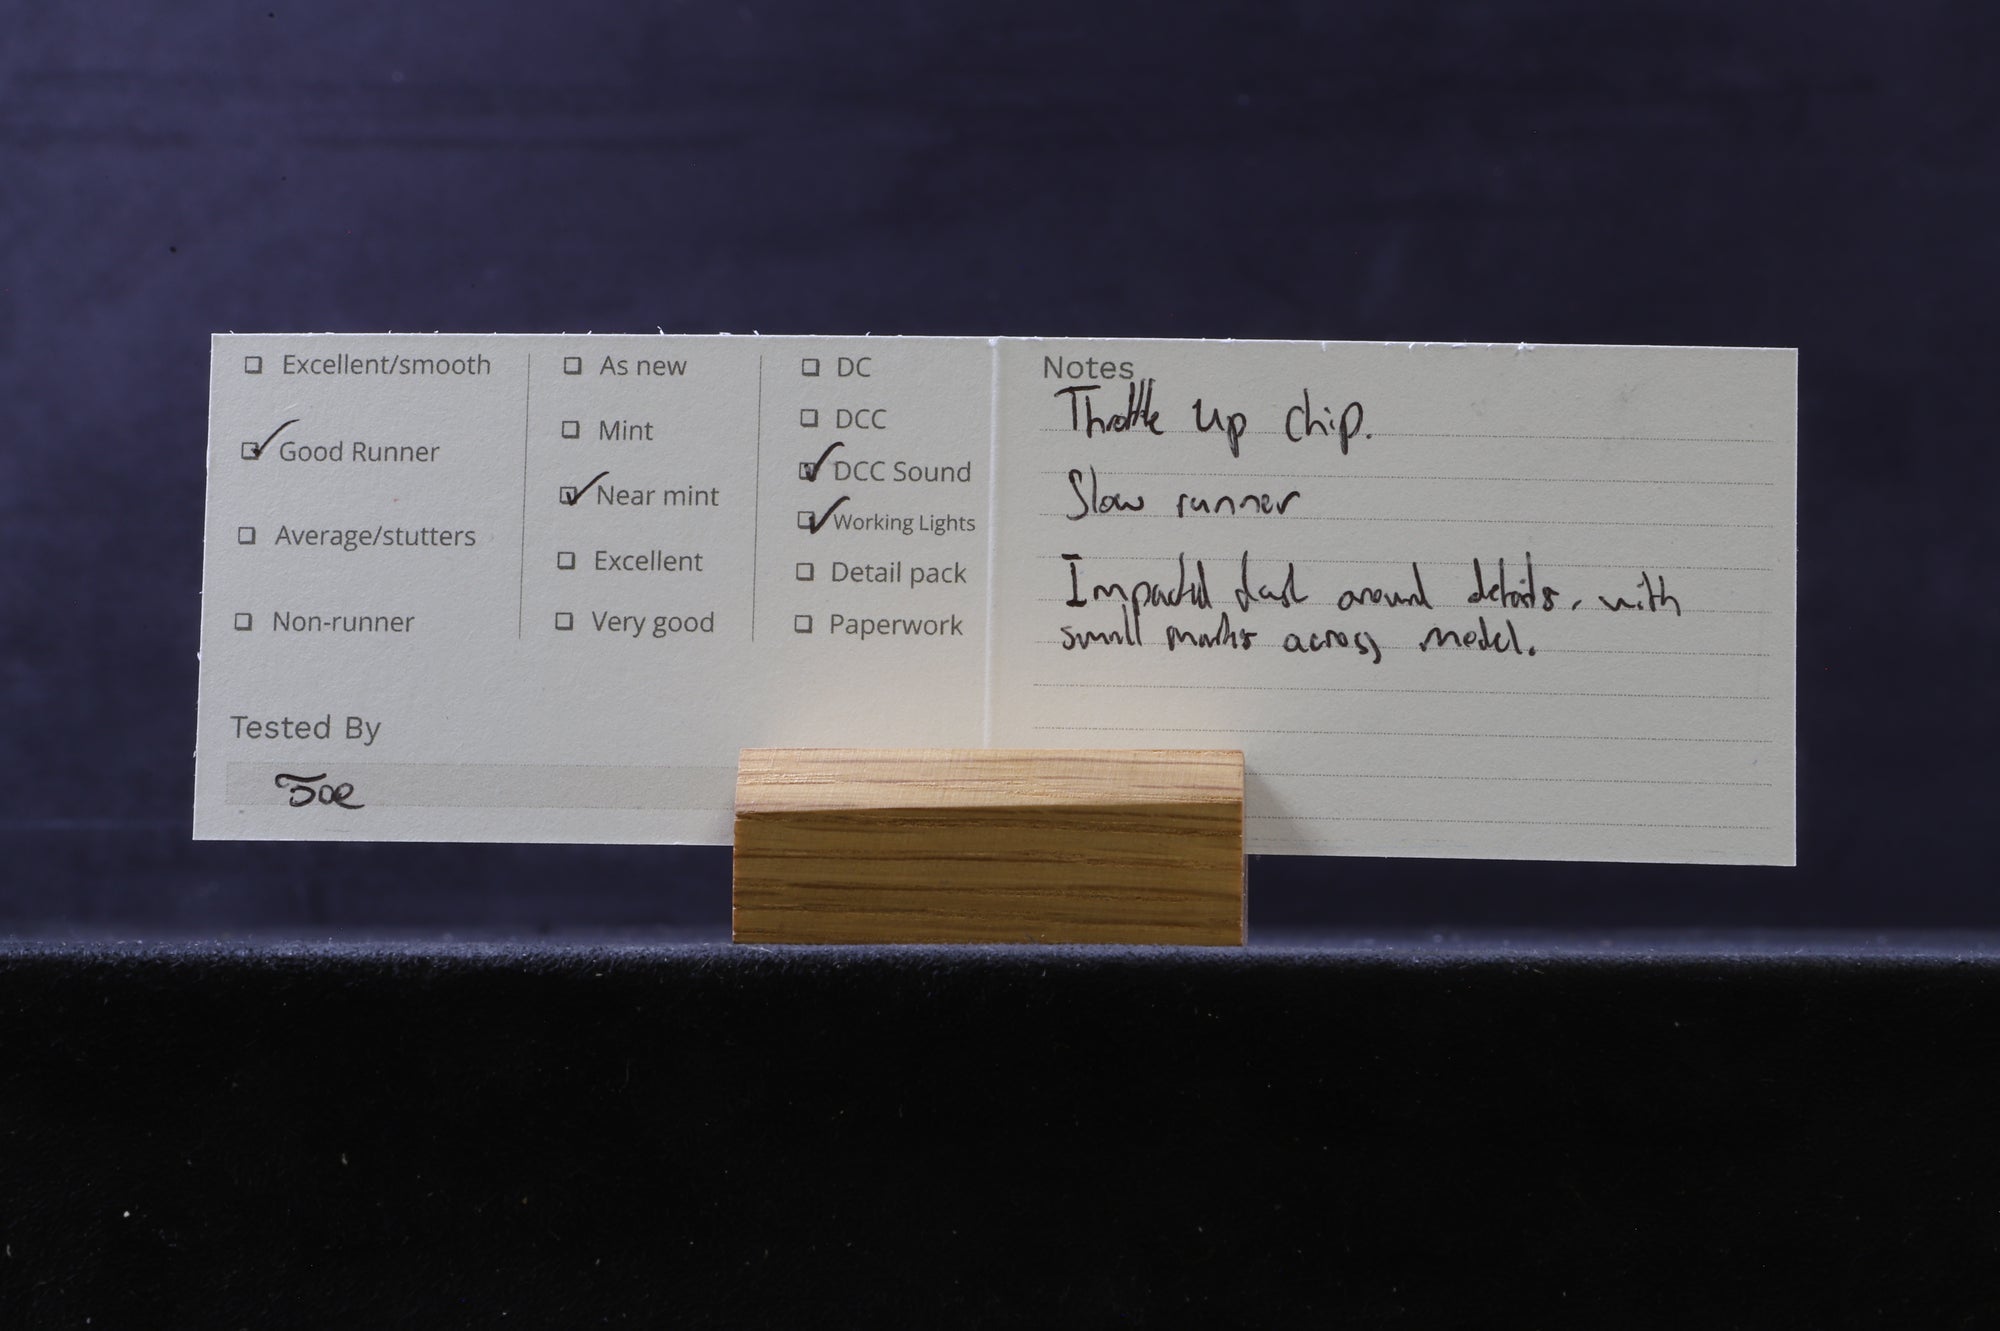 Excellent/smooth
Good Runner
Average/stutters
Non-runner
As new
Mint
Near mint
Excellent
Very good
DC
DCC
DCC Sound
Working Lights
Detail pack
Paperwork
Tested By
Joe
Notes
Throttle Up Chip.
Slow runner
Impacted dust around details, with
small marks across model.